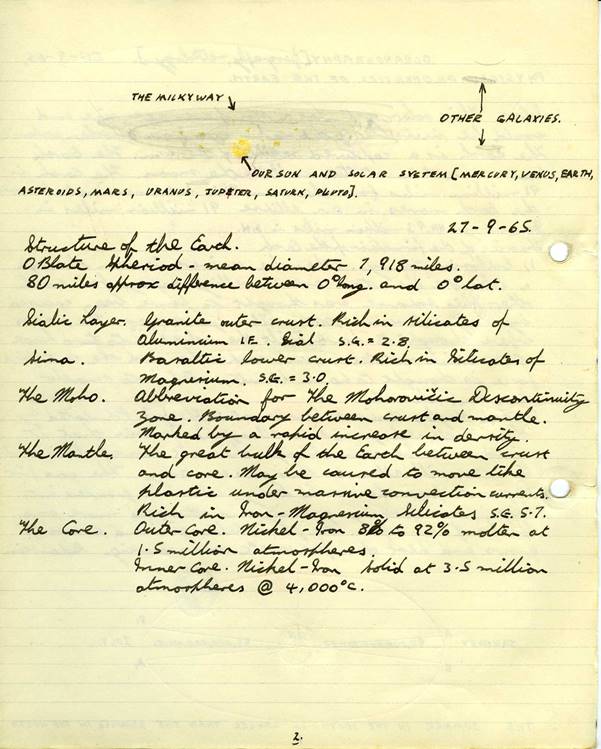 THE MILKYWAY
OTHER GALAXIES.
OUR SUN AND SOLAR SYSTEM [MERCURY, VENUS, EARTH,
ASTEROIDS, MARS, URANUS, JUPITER, SATURN, PLUTO].
27-9-65.
Structure of the Earth.
OBlate Spheriod - mean diameter 7,918 miles.
80 miles approx difference between 0° long. and 0° lat.
Sialic Layer. Granite outer crust. Rich in silicates of
Aluminium I.E. Sial S.G. = 2.8.
Sima. Basaltic lower crust. Rich in Silicates of
Magnesium. S.G. = 3.0.
The Moho. Abbreviation for The Mohorovičic Discontinuity
zone. Boundary between crust and mantle.
Marked by a rapid increase in density.
The Mantle. The great bulk of the Earth between crust
and core. May be caused to move like
plastic under massive convection currents.
Rich in Iron-Magnesium Silicates S.G. 5.7.
The Core. Outer Core. Nickel-Iron to 92% molten at
1.5 million atmospheres.
Inner Core. Nickel-Iron solid at 3.5 million
atmospheres @ 4,000°C.
2.